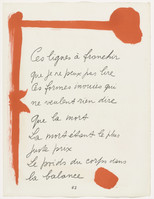 Ces lignes à franchir
que je ne peux pas lire
Ces formes inouïes qui
ne veulent rien dire
Que la mort
La mort étant le plus
juste prix
Le poids du corps dans
la balance